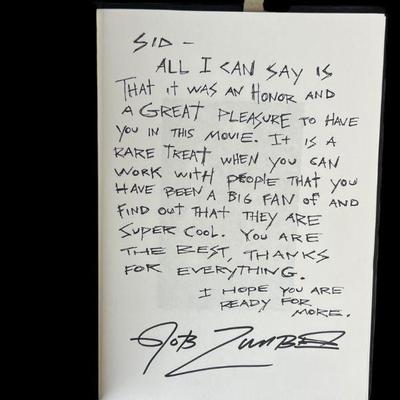 SID -
ALL I CAN SAY IS
THAT IT WAS AN HONOR AND
A GREAT PLEASURE TO HAVE
YOU IN THIS MOVIE. IT IS A
RARE TREAT WHEN YOU CAN
WORK WITH PEOPLE THAT YOU
HAVE BEEN A BIG FAN OF AND
FIND OUT THAT THEY ARE
SUPER COOL. YOU ARE
THE BEST, THANKS
FOR EVERYTHING.
I HOPE YOU ARE
READY FOR
MORE.
ROB ZOMBIE